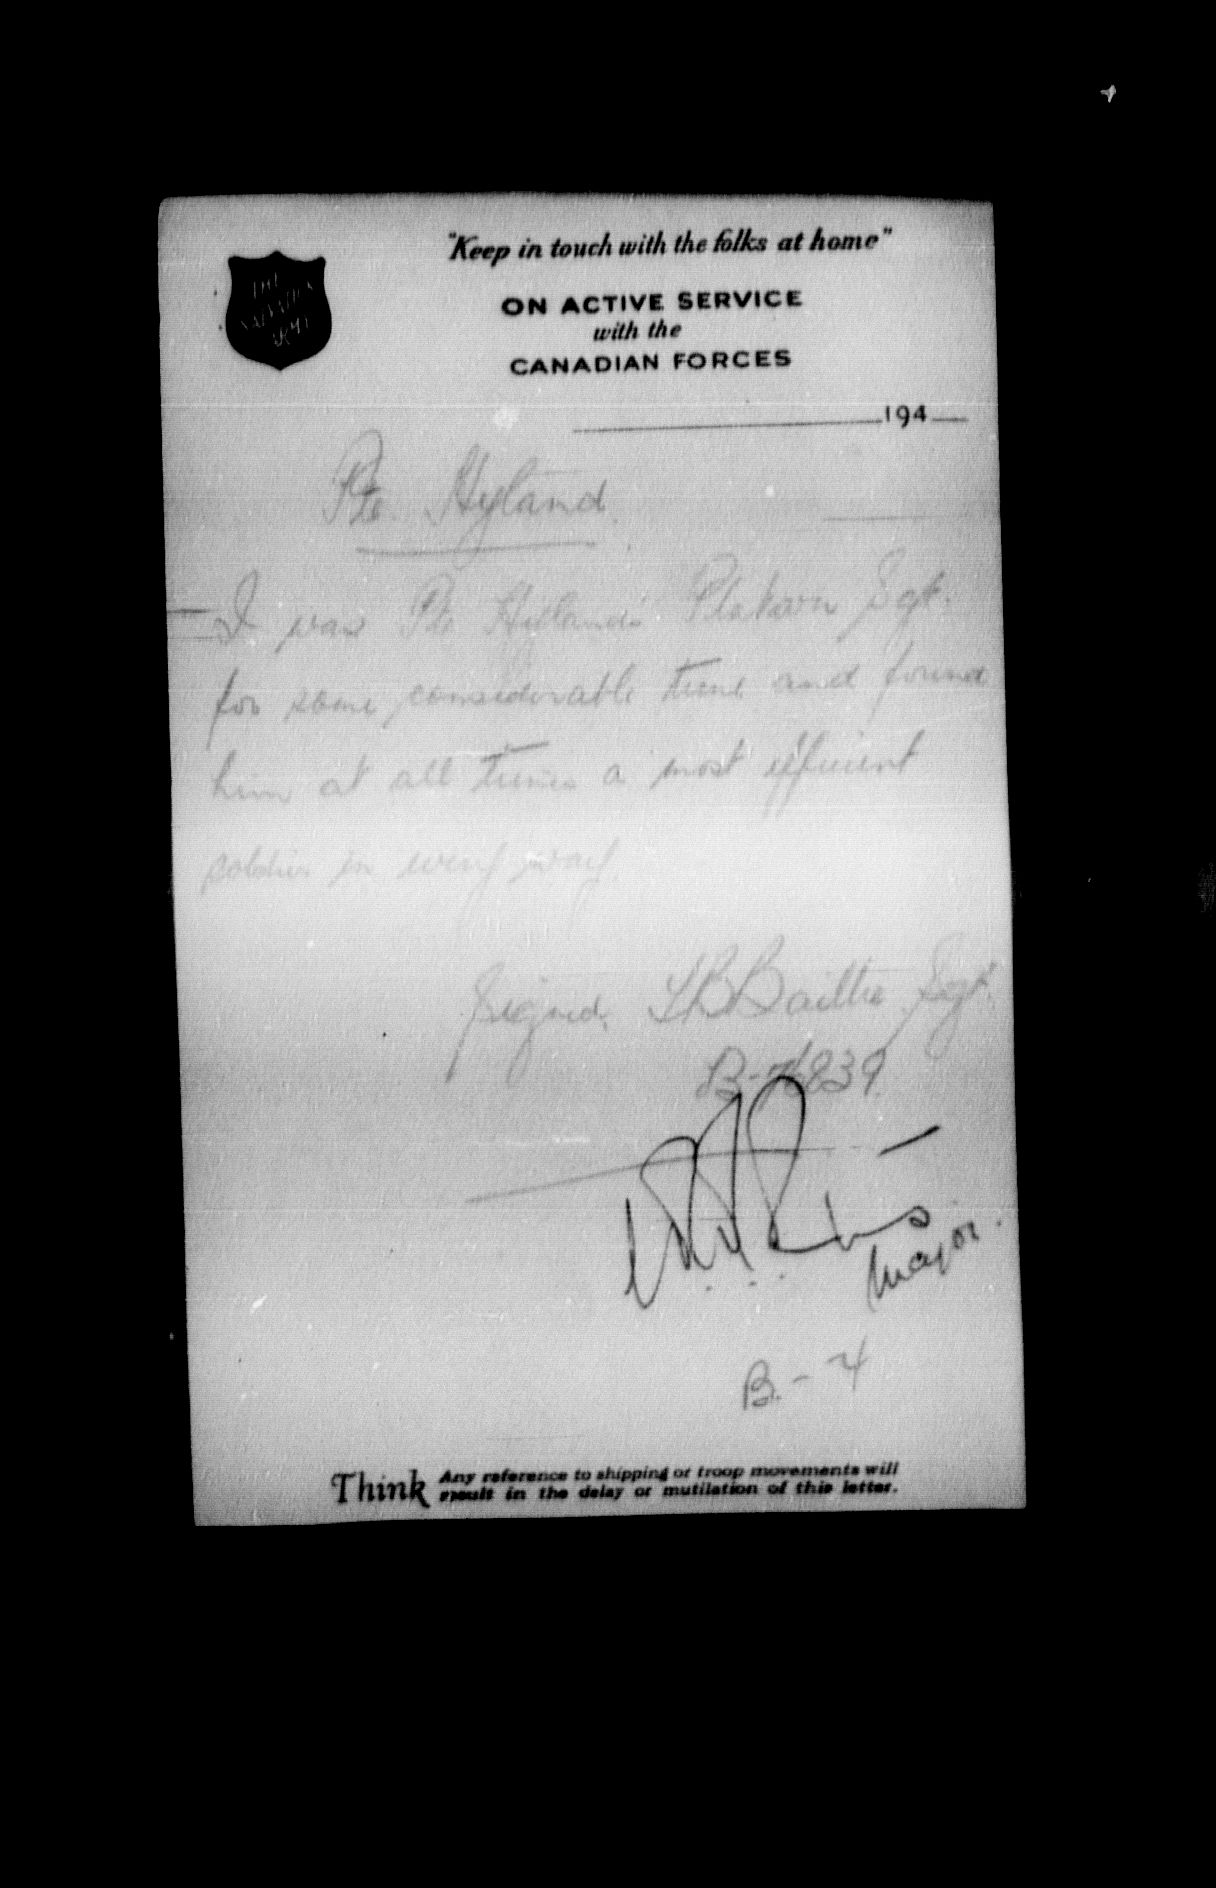 THE
SALVATION
ARMY
"Keep in touch with the folks at home"
ON ACTIVE SERVICE
with the
CANADIAN FORCES
194
Pte. Hyland.
I was Pte Hyland's Platoon Sgt.
for some considerable time and found
him at all times a most efficient
soldier in every way.
Signed, Baillie Sgt.
Major.
B-4
Think Any reference to shipping or troop movements will
result in the delay or mutilation of this letter.